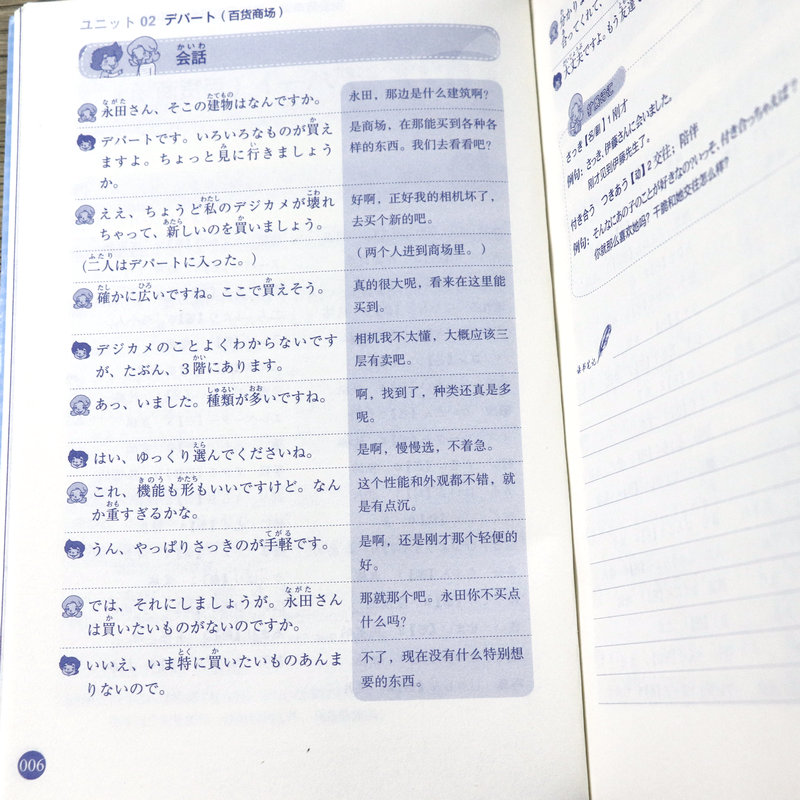 ユニット 02 デパート（百货商场）
会話
永田さん、そこの建物はなんですか。
永田，那边是什么建筑啊？
デパートです。いろいろなものが買え
ますよ。ちょっと見に行きましょう
か。
是商场，在那能买到各种各
样的东西。我们去看看吧？
ええ、ちょうど私のデジカメが壊れ
ちゃって、新しいのを買いましょう。
好啊，正好我的相机坏了，
去买个新的吧。
（二人はデパートに入った。）
（两个人进到商场里。）
確かに広いですね。ここで買えそう。
真的很大呢，看来在这里能
买到。
デジカメのことよくわからないです
が、たぶん、３階にあります。
相机我不太懂，大概应该三
层有卖吧。
あっ、いました。種類が多いですね。
啊，找到了，种类还真是多
呢。
はい、ゆっくり選んでくださいね。
是啊，慢慢选，不着急。
これ、機能も形もいいですけど。なん
か重すぎるかな。
这个性能和外观都不错，就
是有点沉。
うん、やっぱりさっきのが手軽です。
是啊，还是刚才那个轻便的
好。
では、それにしましょうが。永田さん
は買いたいものがないのですか。
那就那个吧。永田你不买点
什么吗？
いいえ、いま特に買いたいものあんま
りないので。
不了，现在没有什么特别想
要的东西。
006
合ってくれて、
大丈夫ですよ。もう友達
さっき【名副】1 刚才
例句：さっき、伊藤さんに会いました。
刚才见到伊藤先生了。
付き合う つきあう【动】2 交往；陪伴
例句：そんなにあの子のことが好きなの?いっそ、付き合っちゃえば？
你就那么喜欢她吗？干脆和她交往怎么样？